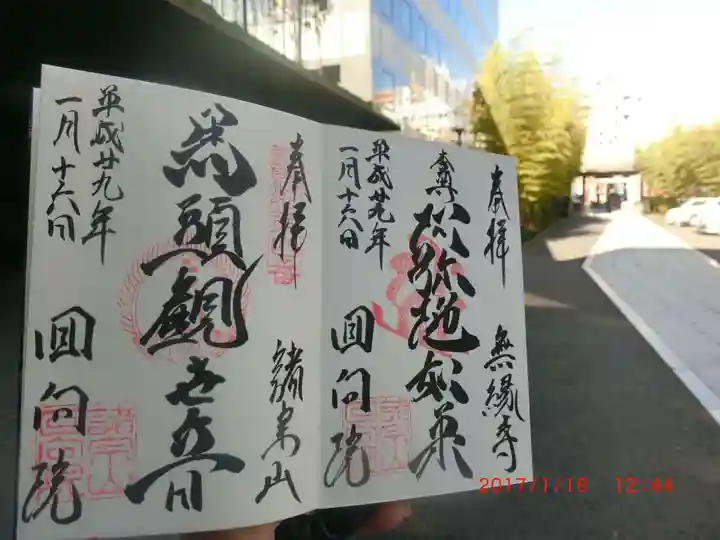 奉拝
無縁寺
本尊
阿弥陀如来
平成廿九年
一月十六日
回向院
奉拝
諸宗山
馬頭観世音
平成廿九年
一月十六日
回向院
2017/1/16 12:44